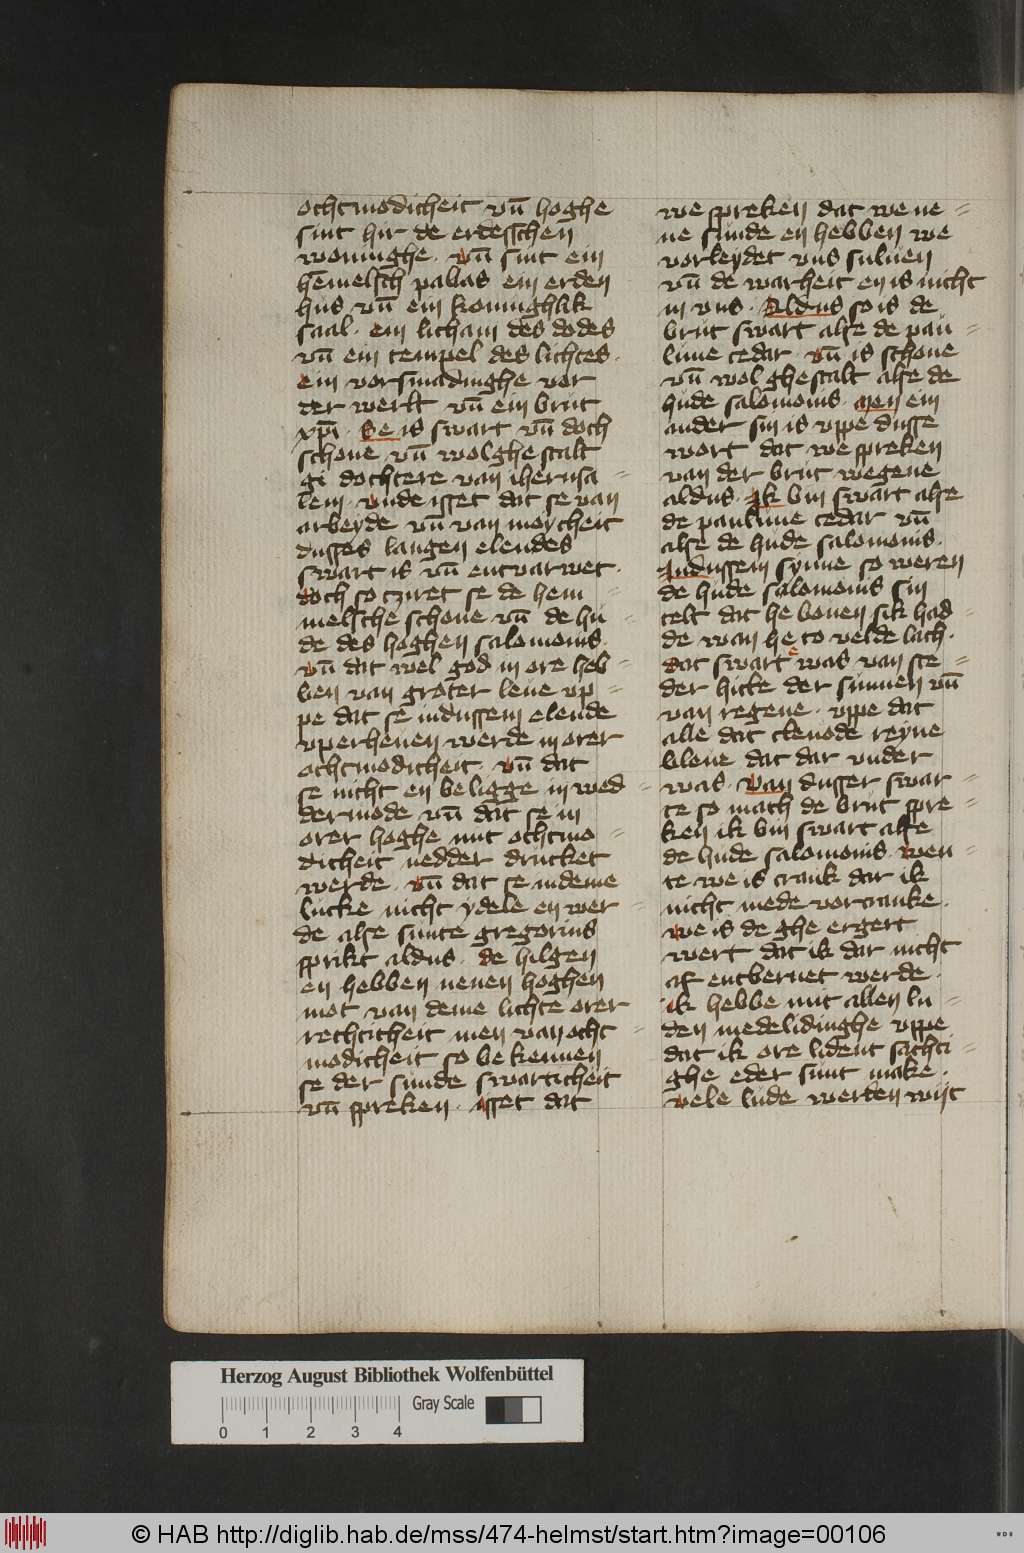 ochtmodicheit vn̄ hoghe
sint hir de erdesschen
woninghe · vn̄ sint ein
hemelsch pallas ein erden
hus vn̄ ein koninghlik
saal · ein licham des dodes
vn̄ ein tempel des lichtes ·
ein vorsmadinghe vor
der werlt vn̄ ein brut
xp̄i · Se is swart vn̄ doch
schone vn̄ wolghestalt
gi dochtere van iherusa=
lem · vnde isset dat se van
arbeyde vn̄ van moycheit
dusses langen elendes
swart is vn̄ entvarwet ·
doch so tziret se de hem=
melsche schone vn̄ de hu=
de des hoghen salomonis ·
vn̄ dat wel god in ore heb=
ben van groter leue vp=
pe dat se indussem elende
vperheuen werde in orer
ochtmodicheit · vn̄ dat
se nicht en beligge in wed=
dermode vn̄ dat se in
orer hoghe mit ochtmo=
dicheit nedder drucket
werde · vn̄ dat se in deme
lucke nicht ydele en wer=
de alse sunte gregorius
sprikt aldus · de hilgen
en hebben nenen hoghen
mot van deme lichte orer
rechticheit men van ocht=
modicheit so bekennen
se der sunde swarticheit
vn̄ spreken · isset dat
we spreken dat we ne=
ne sunde en hebben we
vorleydet vns suluen
vn̄ de warheit en is nicht
in vns · Aldus so is de
brut swart alse de pau=
lune cedar · vn̄ is schone
vn̄ wol ghestalt alse de
hude salomonis · Men ein
ander sin is vppe dusse
wort dat we spreken
van der brut wegene
aldus · Jk bin swart alse
de paulune cedar vn̄
alse de hude salomonis ·
Jndussem synne so weren
de hude salomonis sin
telt dat he bouen sik had=
de wan he to velde lach ·
dat swart was van ste=
der hicke der sunnen vn̄
van regene · vppe dat
alle dat clenode reyne
bleue dat dar vnder
was · Van dusser swar=
te so mach de brut spre=
ken ik bin swart alse
de hude salomonis · wen=
te we is crank dar ik
nicht mede vorcranke ·
we is de ghe ergert
wert dat ik dar nicht
af entbernet werde ·
ik hebbe mit allen lu=
den medelidinghe vppe
dat ik ore lident sachti=
ghe eder sunt make ·
vele lude werden wijt
Herzog August Bibliothek Wolfenbüttel
Gray Scale
0 1 2 3 4
© HAB http://diglib.hab.de/mss/474-helmst/start.htm?image=00106